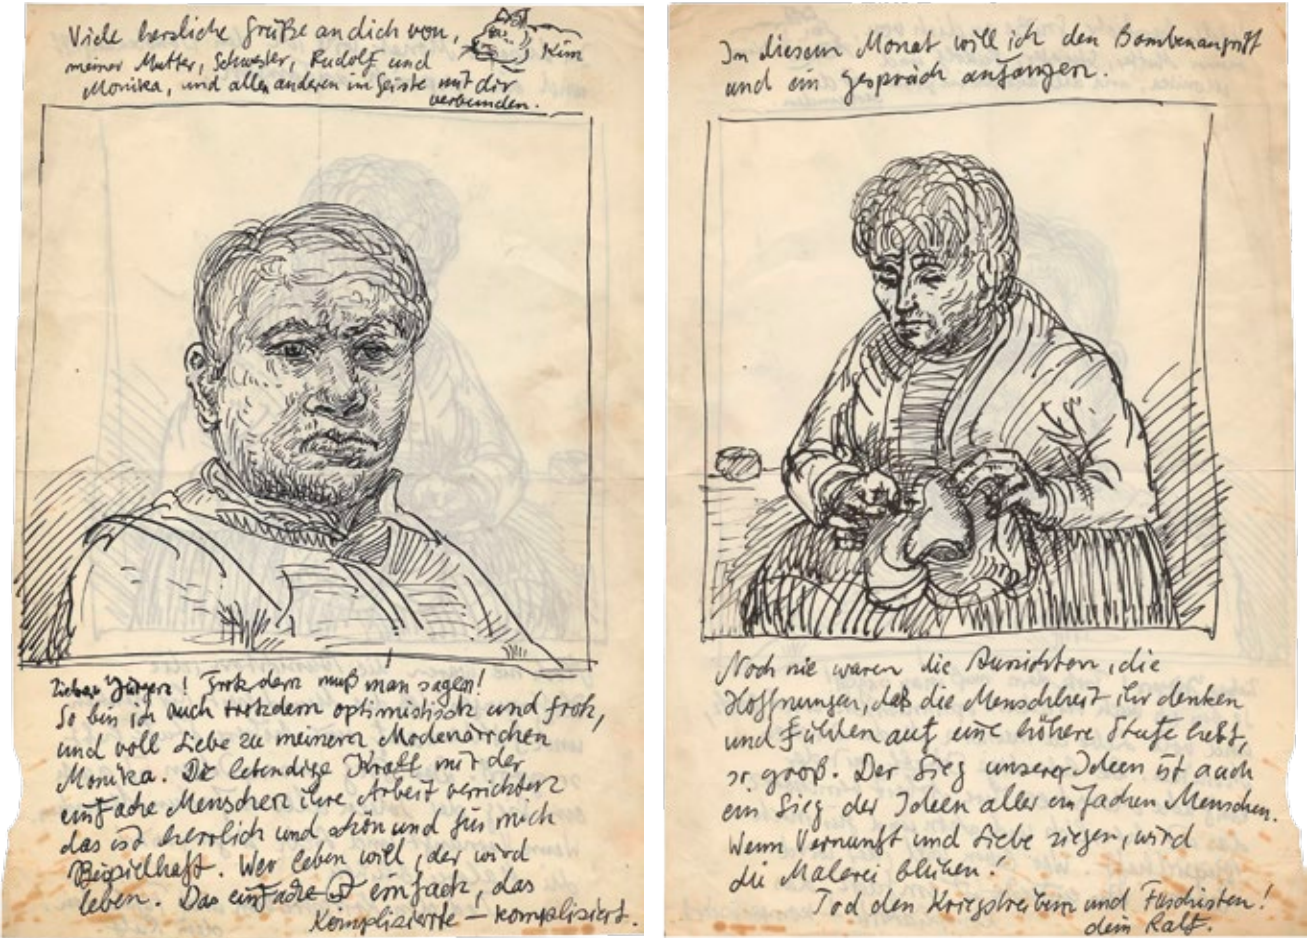 Viele herzliche Grüße an dich von,
Kim
meiner Mutter, Schwester, Rudolf und
Monika, und allen anderen im Geiste mit dir
verbunden.
Lieber Jürgen! Trotzdem muß man sagen!
So bin ich auch trotzdem optimistisch und froh,
und voll Liebe zu meinem Modenärrchen
Monika. Die lebendige Kraft mit der
einfache Menschen ihre Arbeit verrichten
das ist herrlich und schön und für mich
Beispielhaft. Wer leben will, der wird
leben. Das einfache ist einfach, das
Komplizierte – kompliziert.
In diesem Monat will ich den Bombenangriff
und ein Gespräch anfangen.
Noch nie waren die Aussichten, die
Hoffnungen, daß die Menschheit ihr denken
und Fühlen auf eine höhere Stufe hebt,
so groß. Der Sieg unserer Ideen ist auch
ein Sieg der Ideen aller einfachen Menschen.
Wenn Vernunft und Liebe siegen, wird
die Malerei blühen!
Tod den Kriegstreibern und Faschisten!
dein Ralf.